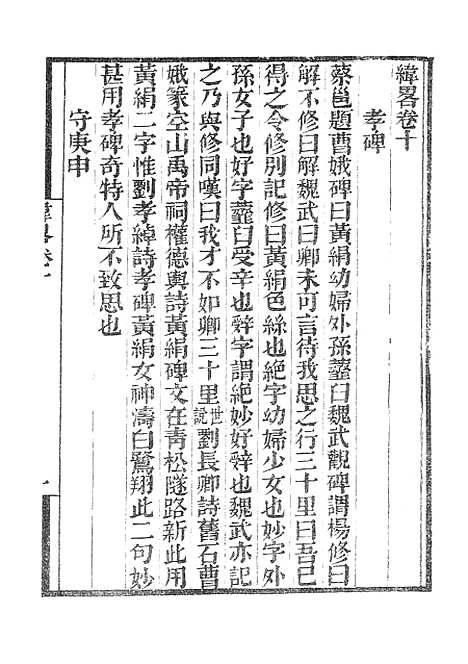 緯畧卷十
孝碑
蔡邕題曹娥碑曰黃絹幼婦外孫虀臼魏武觀碑謂楊修曰
解不修曰解魏武曰卿未可言待我思之行三十里曰吾已
得之令修別記修曰黃絹色絲也絶字幼婦少女也妙字外
孫女子也好字虀臼受辛也辤字謂絶妙好辤也魏武亦記
之乃與修同嘆曰我才不如卿三十里世說劉長卿詩舊石曹
娥篆空山禹帝祠權德輿詩黃絹碑文在青松隧路新此用
黃絹二字惟劉孝綽詩孝碑黃絹女神濤白鷺翔此二句妙
甚用孝碑奇特人所不致思也
守庚申